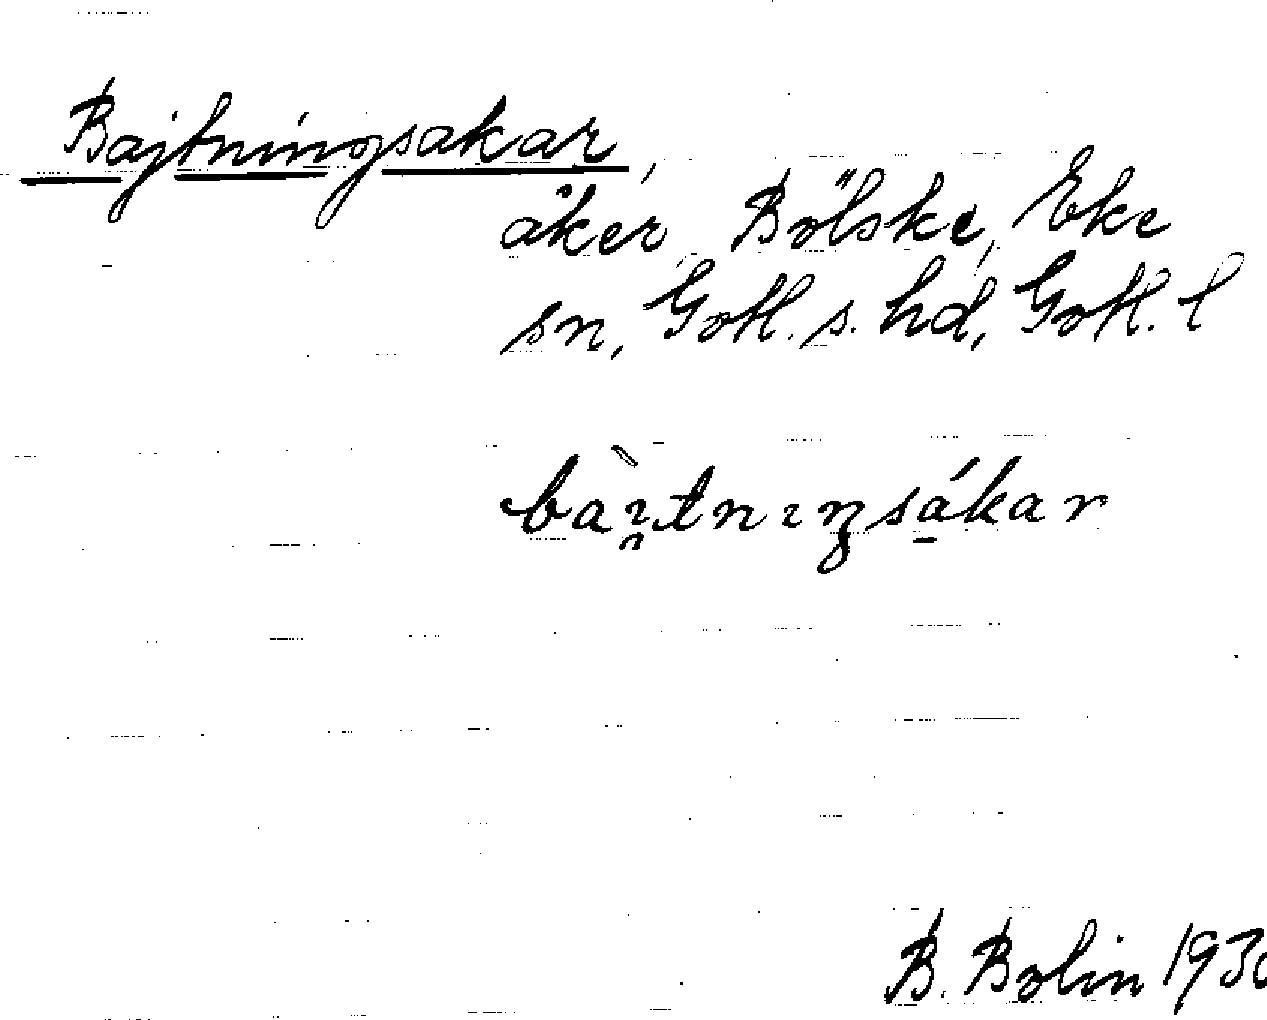 Bajtningsakar,
åker, Bölske, Eke
sn, Gotl. s. hd, Gotl. l
bàı̯tnıŋsákar
B. Bolin 1930